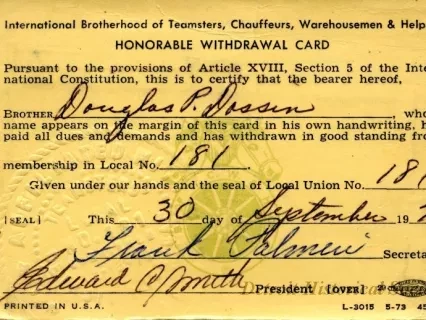 International Brotherhood of Teamsters, Chauffeurs, Warehousemen & Help
HONORABLE WITHDRAWAL CARD
Pursuant to the provisions of Article XVIII, Section 5 of the Inte
national Constitution, this is to certify that the bearer hereof,
BROTHER Douglas P. Dossin, who
name appears on the margin of this card in his own handwriting, h
paid all dues and demands and has withdrawn in good standing fro
membership in Local No. 181.
Given under our hands and the seal of Local Union No. 181
[SEAL] This 30 day of September 19
Frank Palmeri Secreta
Edward C Smith President [OVER]
PRINTED IN U.S.A. L-3015 5-73 45